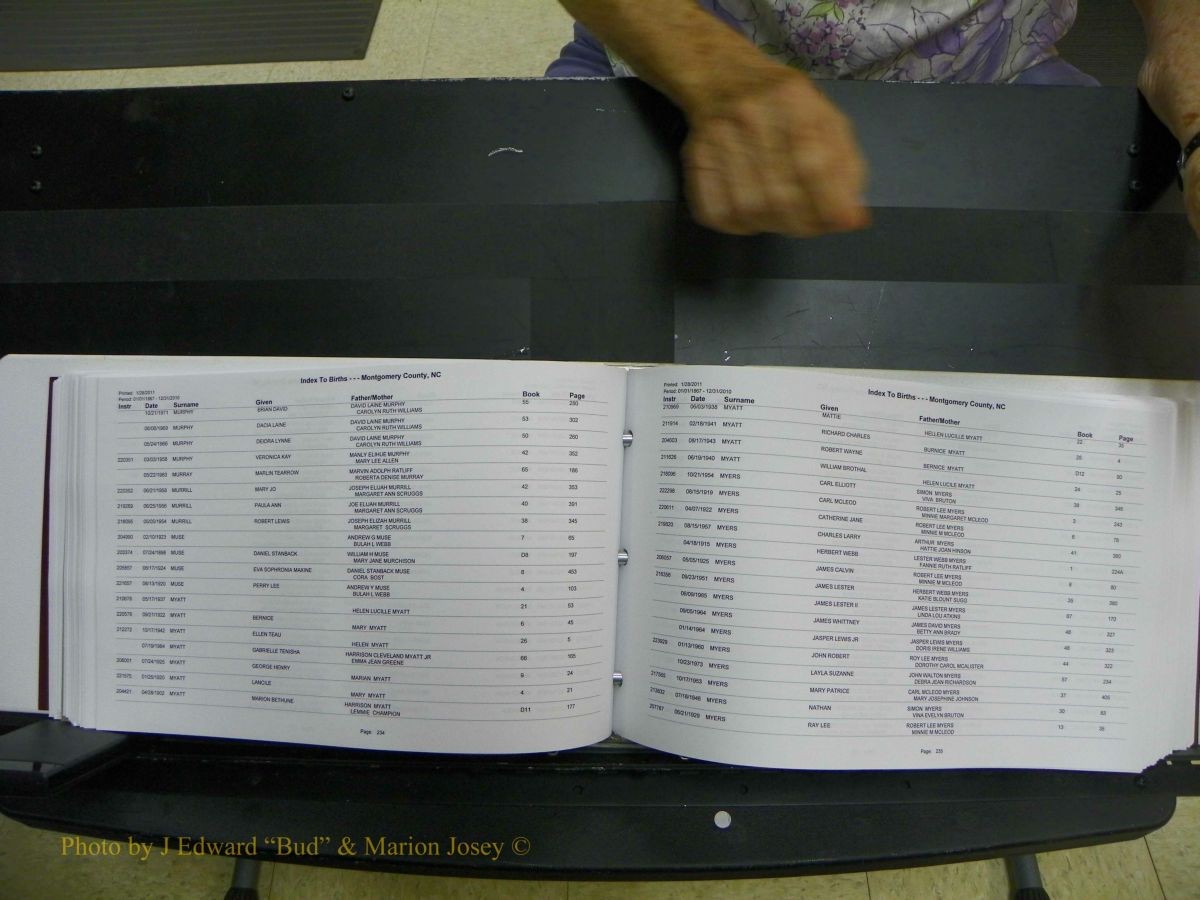 Printed: 1/28/2011
Index To Births - - - Montgomery County, NC
Period: 01/01/1867 - 12/31/2010
Instr Date Surname Given Father/Mother Book Page
10/21/1971 MURPHY BRIAN DAVID DAVID LAINE MURPHY 55 280
CAROLYN RUTH WILLIAMS
MURPHY DACIA LAINE DAVID LAINE MURPHY 53 302
CAROLYN RUTH WILLIAMS
05/24/1966 MURPHY DEIDRA LYNNE DAVID LAINE MURPHY 50 260
CAROLYN RUTH WILLIAMS
220351 03/03/1958 MURPHY VERONICA KAY MANLY ELIHUE MURPHY 42 352
MARY LEE ALLEN
05/22/1983 MURRAY MARLIN TEARROW MARVIN ADOLPH RATLIFF 65 186
ROBERTA DENISE MURRAY
220352 06/21/1958 MURRILL MARY JO JOSEPH ELIJAH MURRILL 42 353
MARGARET ANN SCRUGGS
219269 06/25/1956 MURRILL PAULA ANN JOE ELIJAH MURRILL 40 391
MARGARET ANN SCRUGGS
218095 MURRILL ROBERT LEWIS JOSEPH ELIZAH MURRILL 38 345
MARGARET SCRUGGS
204990 02/10/1923 MUSE ANDREW G MUSE 7 65
BULAH L WEBB
203374 MUSE DANIEL STANBACK WILLIAM H MUSE D8 197
MARY JANE MURCHISON
205857 08/17/1924 MUSE EVA SOPHRONIA MAXINE DANIEL STANBACK MUSE 8 453
CORA BOST
221657 08/13/1920 MUSE PERRY LEE ANDREW Y MUSE 4 103
BULAH L WEBB
210678 05/17/1937 MYATT HELEN LUCILLE MYATT 21 53
220578 09/21/1922 MYATT BERNICE MARY MYATT 6 45
212272 10/17/1942 MYATT ELLEN TEAU HELEN MYATT 26 5
07/19/1984 MYATT GABRIELLE TENISHA HARRISON CLEVELAND MYATT JR 66 165
EMMA JEAN GREENE
206001 07/24/1925 MYATT GEORGE HENRY MARIAN MYATT 9 24
01/26/1920 MYATT LANCILE MARY MYATT 4 21
204421 04/28/1902 MYATT MARION BETHUNE HARRISON MYATT D11 177
LEMMIE CHAMPION
Page: 234
Printed: 1/28/2011
Index To Births - - - Montgomery County, NC
Period: 01/01/1867 - 12/31/2010
Instr Date Surname Given Father/Mother Book Page
210969 06/03/1938 MYATT MATTIE HELLEN LUCILLE MYATT 22 35
211914 02/18/1941 MYATT RICHARD CHARLES BURNICE MYATT 25 4
204603 08/17/1943 MYATT ROBERT WAYNE BERNICE MYATT D12 50
211626 06/19/1940 MYATT WILLIAM BROTHAL HELEN LUCILE MYATT 24 25
218096 10/21/1954 MYERS CARL ELLIOTT SIMON MYERS 38 346
VIVA BRUTON
222298 08/15/1919 MYERS CARL MCLEOD ROBERT LEE MYERS 3 243
MINNIE MARGARET MCLEOD
220611 04/07/1922 MYERS CATHERINE JANE ROBERT LEE MYERS 6 78
MINNIE M MCLEOD
219820 08/15/1957 MYERS CHARLES LARRY ARTHUR MYERS 41 360
HATTIE JOAN HINSON
04/18/1915 MYERS HERBERT WEBB LESTER WEBB MYERS 1 224A
FANNIE RUTH RATLIFF
206057 05/05/1925 MYERS JAMES CALVIN ROBERT LEE MYERS 80
MINNIE M MCLEOD
216356 09/23/1951 MYERS JAMES LESTER HERBERT WEBB MYERS 35 360
KATIE BLOUNT SUGG
MYERS JAMES LESTER II JAMES LESTER MYERS 67 170
LINDA LOU ATKINS
09/05/1964 MYERS JAMES WHITNEY JAMES DAVID MYERS 48 327
BETTY ANN BRADY
01/14/1964 MYERS JASPER LEWIS JR JASPER LEWIS MYERS 48 323
DORIS IRENE WILLIAMS
223929 01/13/1960 MYERS JOHN ROBERT ROY LEE MYERS 44 322
DOROTHY CAROL MCALISTER
10/23/1973 MYERS LAYLA SUZANNE JOHN WALTON MYERS 57 234
DEBRA JEAN RICHARDSON
217565 10/17/1953 MYERS MARY PATRICE CARL MCLEOD MYERS 37 405
MARY JOSEPHINE JOHNSON
213832 07/18/1946 MYERS NATHAN SIMON MYERS 30 83
VINA EVELYN BRUTON
207767 05/21/1929 MYERS RAY LEE ROBERT LEE MYERS 13 35
MINNIE M MCLEOD
Page: 235
Photo by J Edward “Bud” & Marion Josey ©